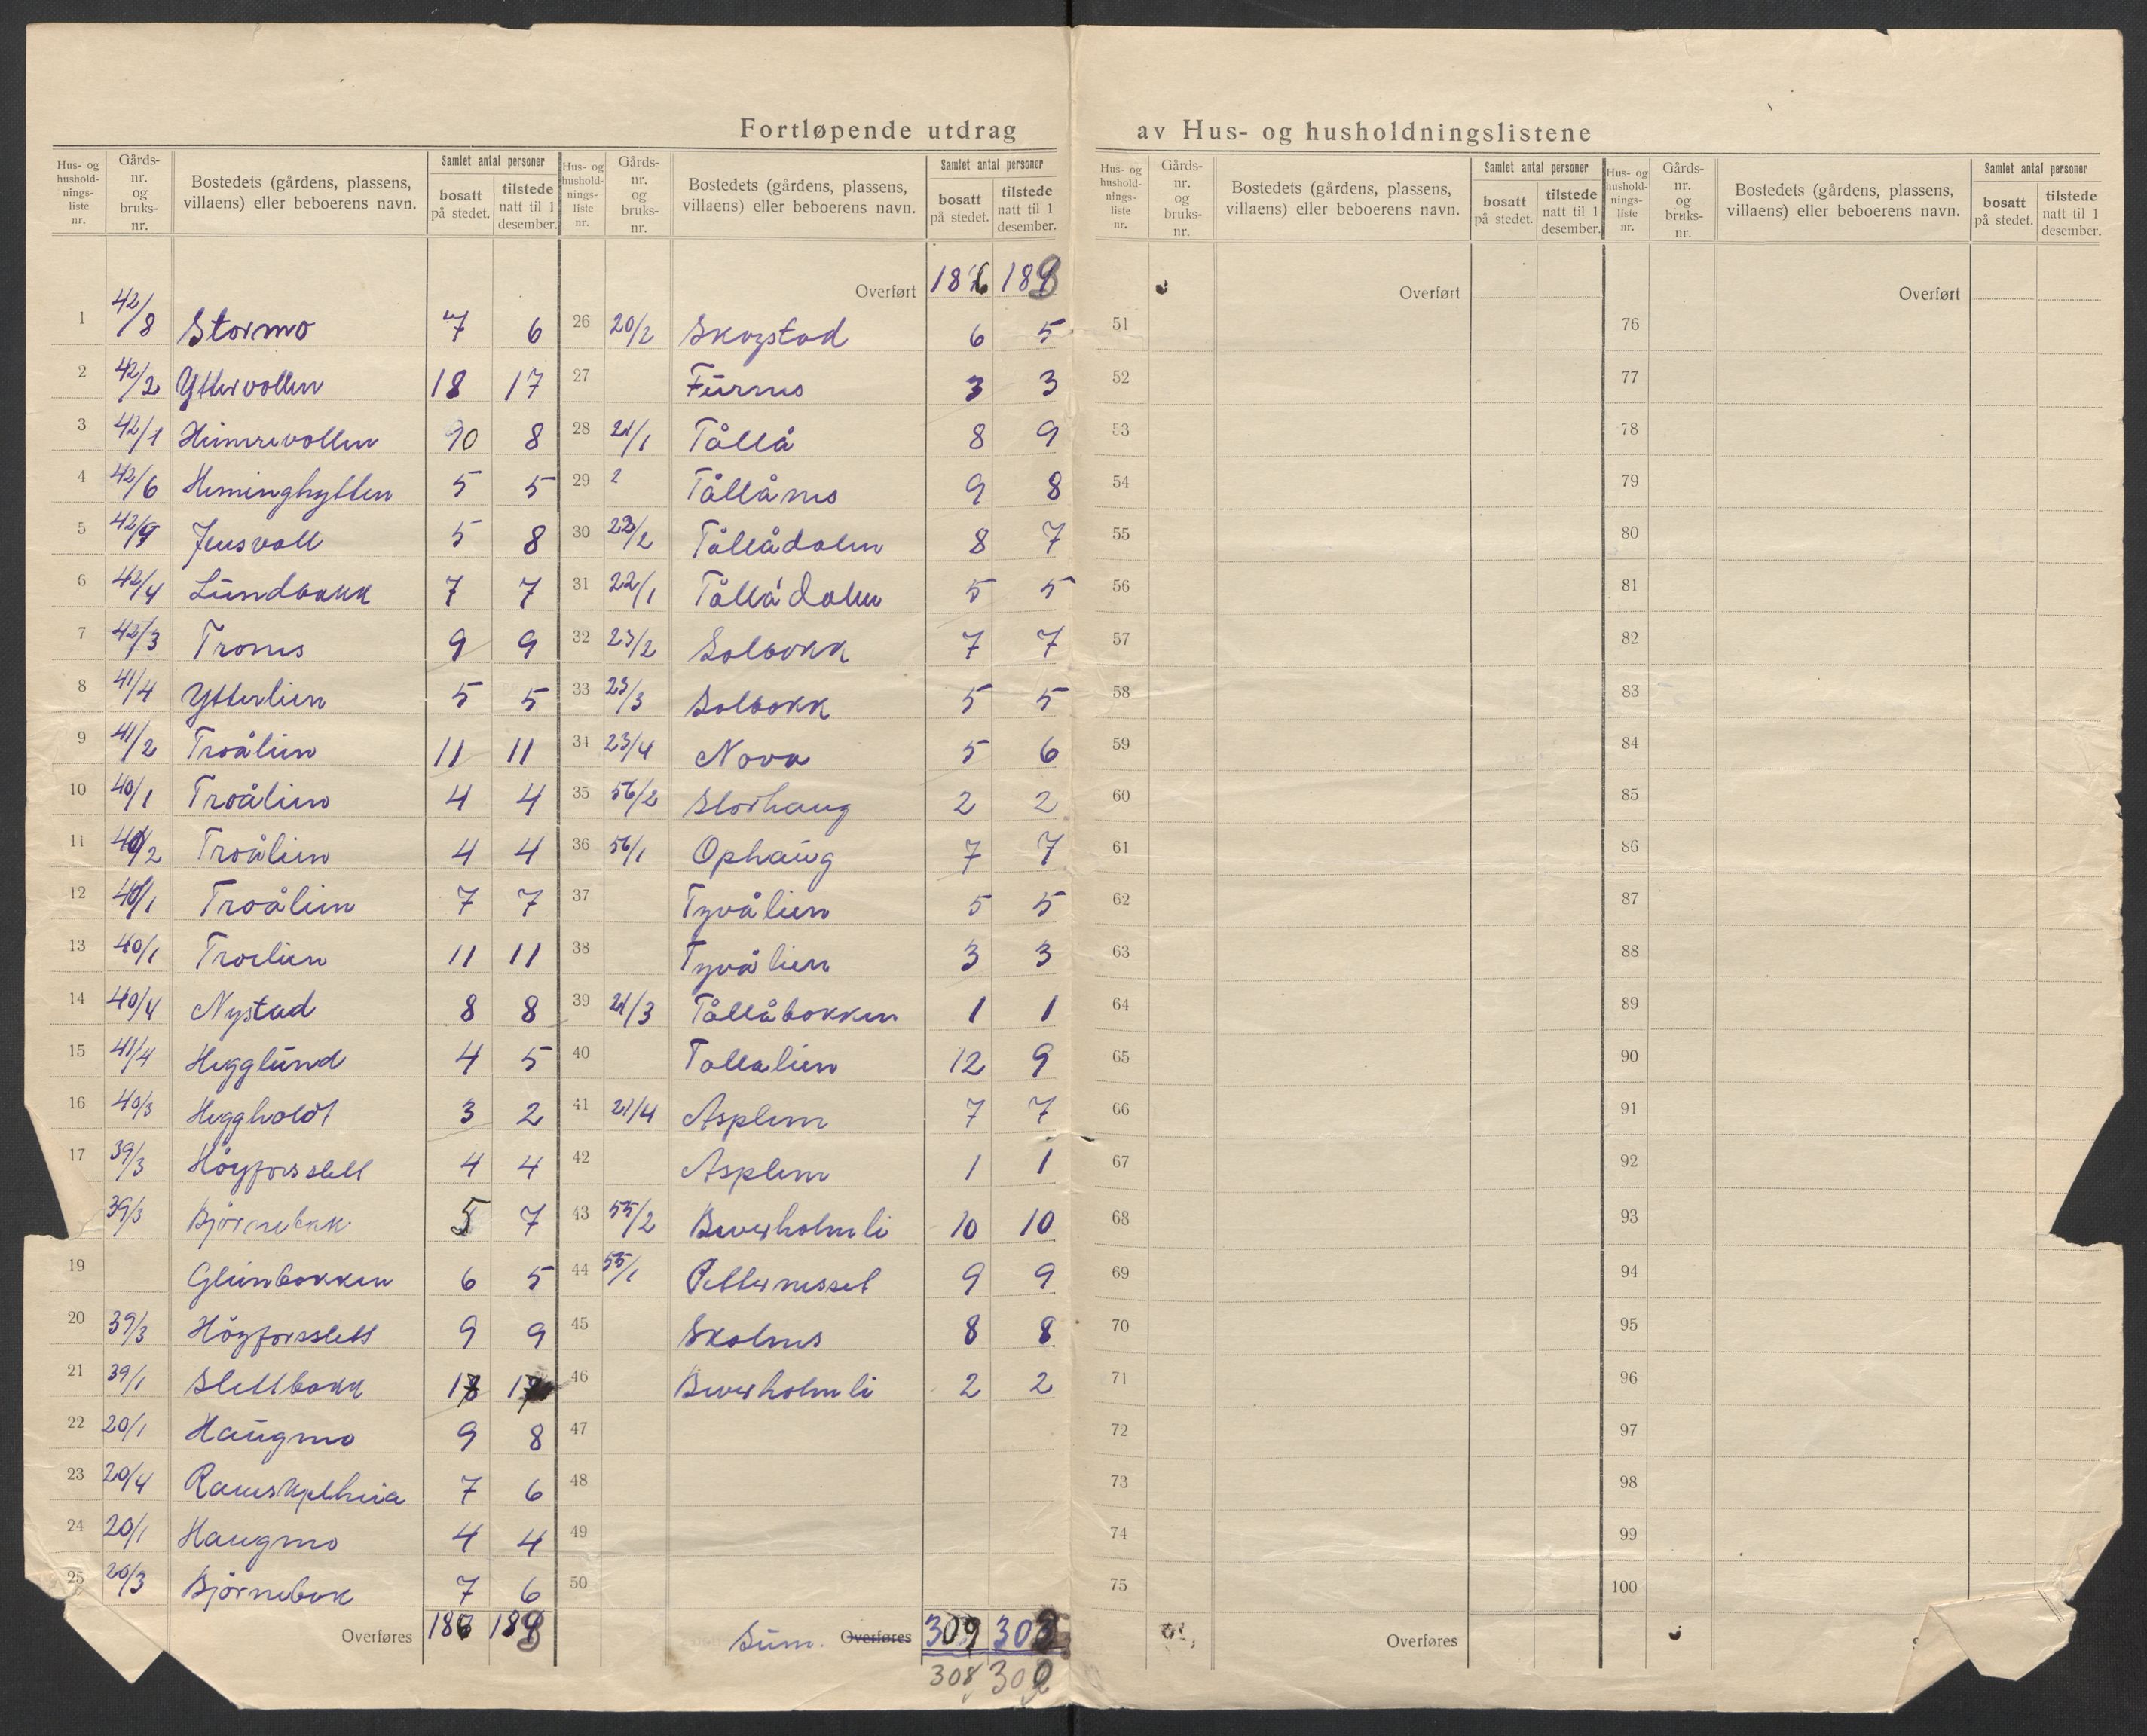 Fortløpende utdrag av Hus- og husholdningslistene
Hus- og hushold-nings-liste nr. Gårds-nr. og bruks-nr. Bostedets (gårdens, plassens, villaens) eller beboerens navn. Samlet antal personer bosatt på stedet. tilstede natt til 1 desember.
1 42/8 Stormo 7 6
2 42/2 Yttervollen 18 17
3 42/1 Heimrevollen 10 8
4 42/6 Heminghytten 5 5
5 42/9 Jensvoll 5 8
6 42/4 Lundbakk 7 7
7 42/3 Trones 9 9
8 41/4 Ytterlien 5 5
9 41/2 Troålien 11 11
10 40/1 Troålien 4 4
11 40/2 Troålien 4 4
12 40/1 Troålien 7 7
13 40/1 Troelien 11 11
14 40/4 Nystad 8 8
15 41/4 Hegglund 4 5
16 40/3 Heggholdt 3 2
17 39/3 Höyforsslett 4 4
39/3 Björnebak 5 7
19 Glimbakken 6 5
20 39/3 Högforsslett 9 9
21 39/1 Slettbakk
22 20/1 Haugmo 9 8
23 20/4 7 6
24 20/1 Haugmo 4 4
25 20/3 Björnebak 7 6
Overføres 186 188
Hus- og hushold-nings-liste nr. Gårds-nr. og bruks-nr. Bostedets (gårdens, plassens, villaens) eller beboerens navn. Samlet antal personer bosatt på stedet. tilstede natt til 1 desember.
Overført 186 188
26 20/2 Skogstad 6 5
27 Furnes 3 3
28 21/1 Tållå 8 9
29 2 Tållånes 9 8
30 22/2 Tållådalen 8 7
31 22/1 Tållådalen 5 5
32 23/2 Solbakk 7 7
33 23/3 Solbakk 5 5
34 23/4 Nova 5 6
35 56/2 Storhaug 2 2
36 56/1 Ophaug 7 7
37 Tyvålien 5 5
38 Tyvålien 3 3
39 21/3 Tållåbakken 1 1
40 Tollalien 12 9
41 21/4 Asplem 7 7
42 Asplem 1 1
43 55/2 Beverholmli 10 10
44 55/1 Petternesset 9 9
45 Skolnes 8 8
46 Beverholmli 2 2
47
48
49
50
Sum. Overføres 309 303
308 302
Hus- og hushold-nings-liste nr. Gårds-nr. og bruks-nr. Bostedets (gårdens, plassens, villaens) eller beboerens navn. Samlet antal personer bosatt på stedet. tilstede natt til 1 desember.
Overført
51
52
53
54
55
56
57
58
59
60
61
62
63
64
65
66
67
68
69
70
71
72
73
74
75
Overføres
Hus- og hushold-nings-liste nr. Gårds-nr. og bruks-nr. Bostedets (gårdens, plassens, villaens) eller beboerens navn. Samlet antal personer bosatt på stedet. tilstede natt til 1 desember.
Overført
76
77
78
79
80
81
82
83
84
85
86
87
88
89
90
91
92
93
94
95
96
97
98
99
100